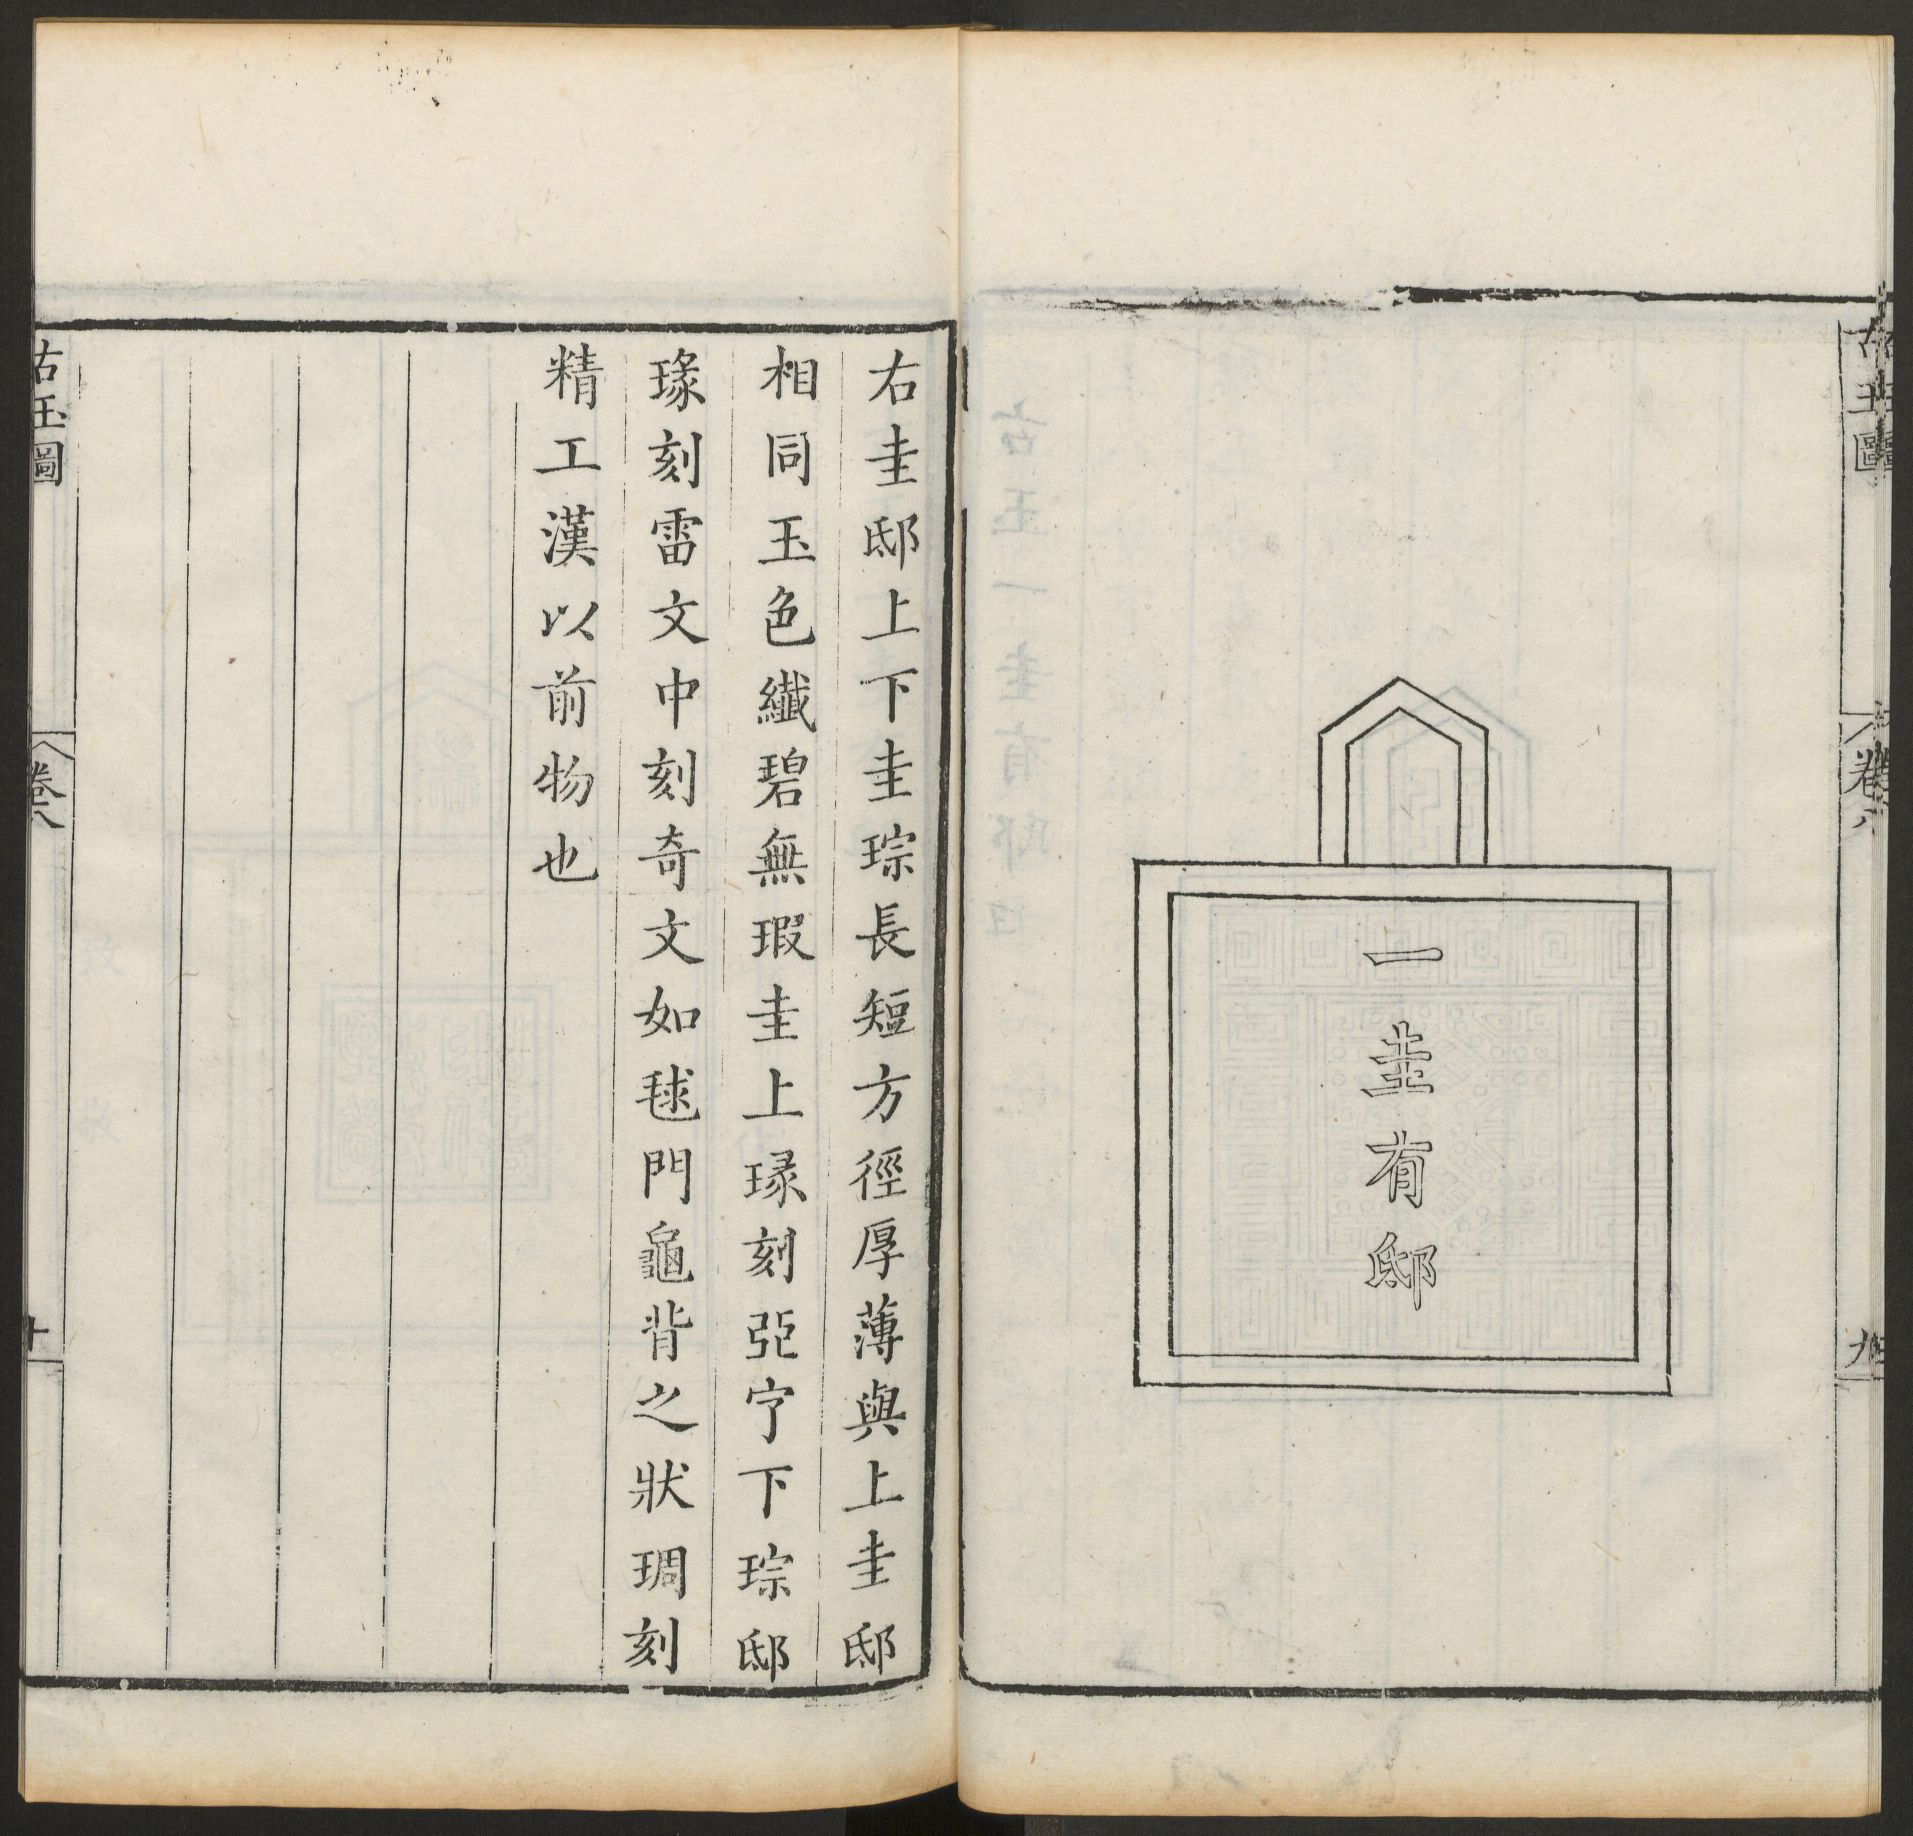 古玉圖
卷八
九
一圭有邸
右圭邸上下圭琮長短方徑厚薄與上圭邸
相同玉色纖碧無瑕圭上瑑刻弡宁下琮邸
瑑刻雷文中刻奇文如毬門龜背之狀琱刻
精工漢以前物也
古玉圖
卷八
十